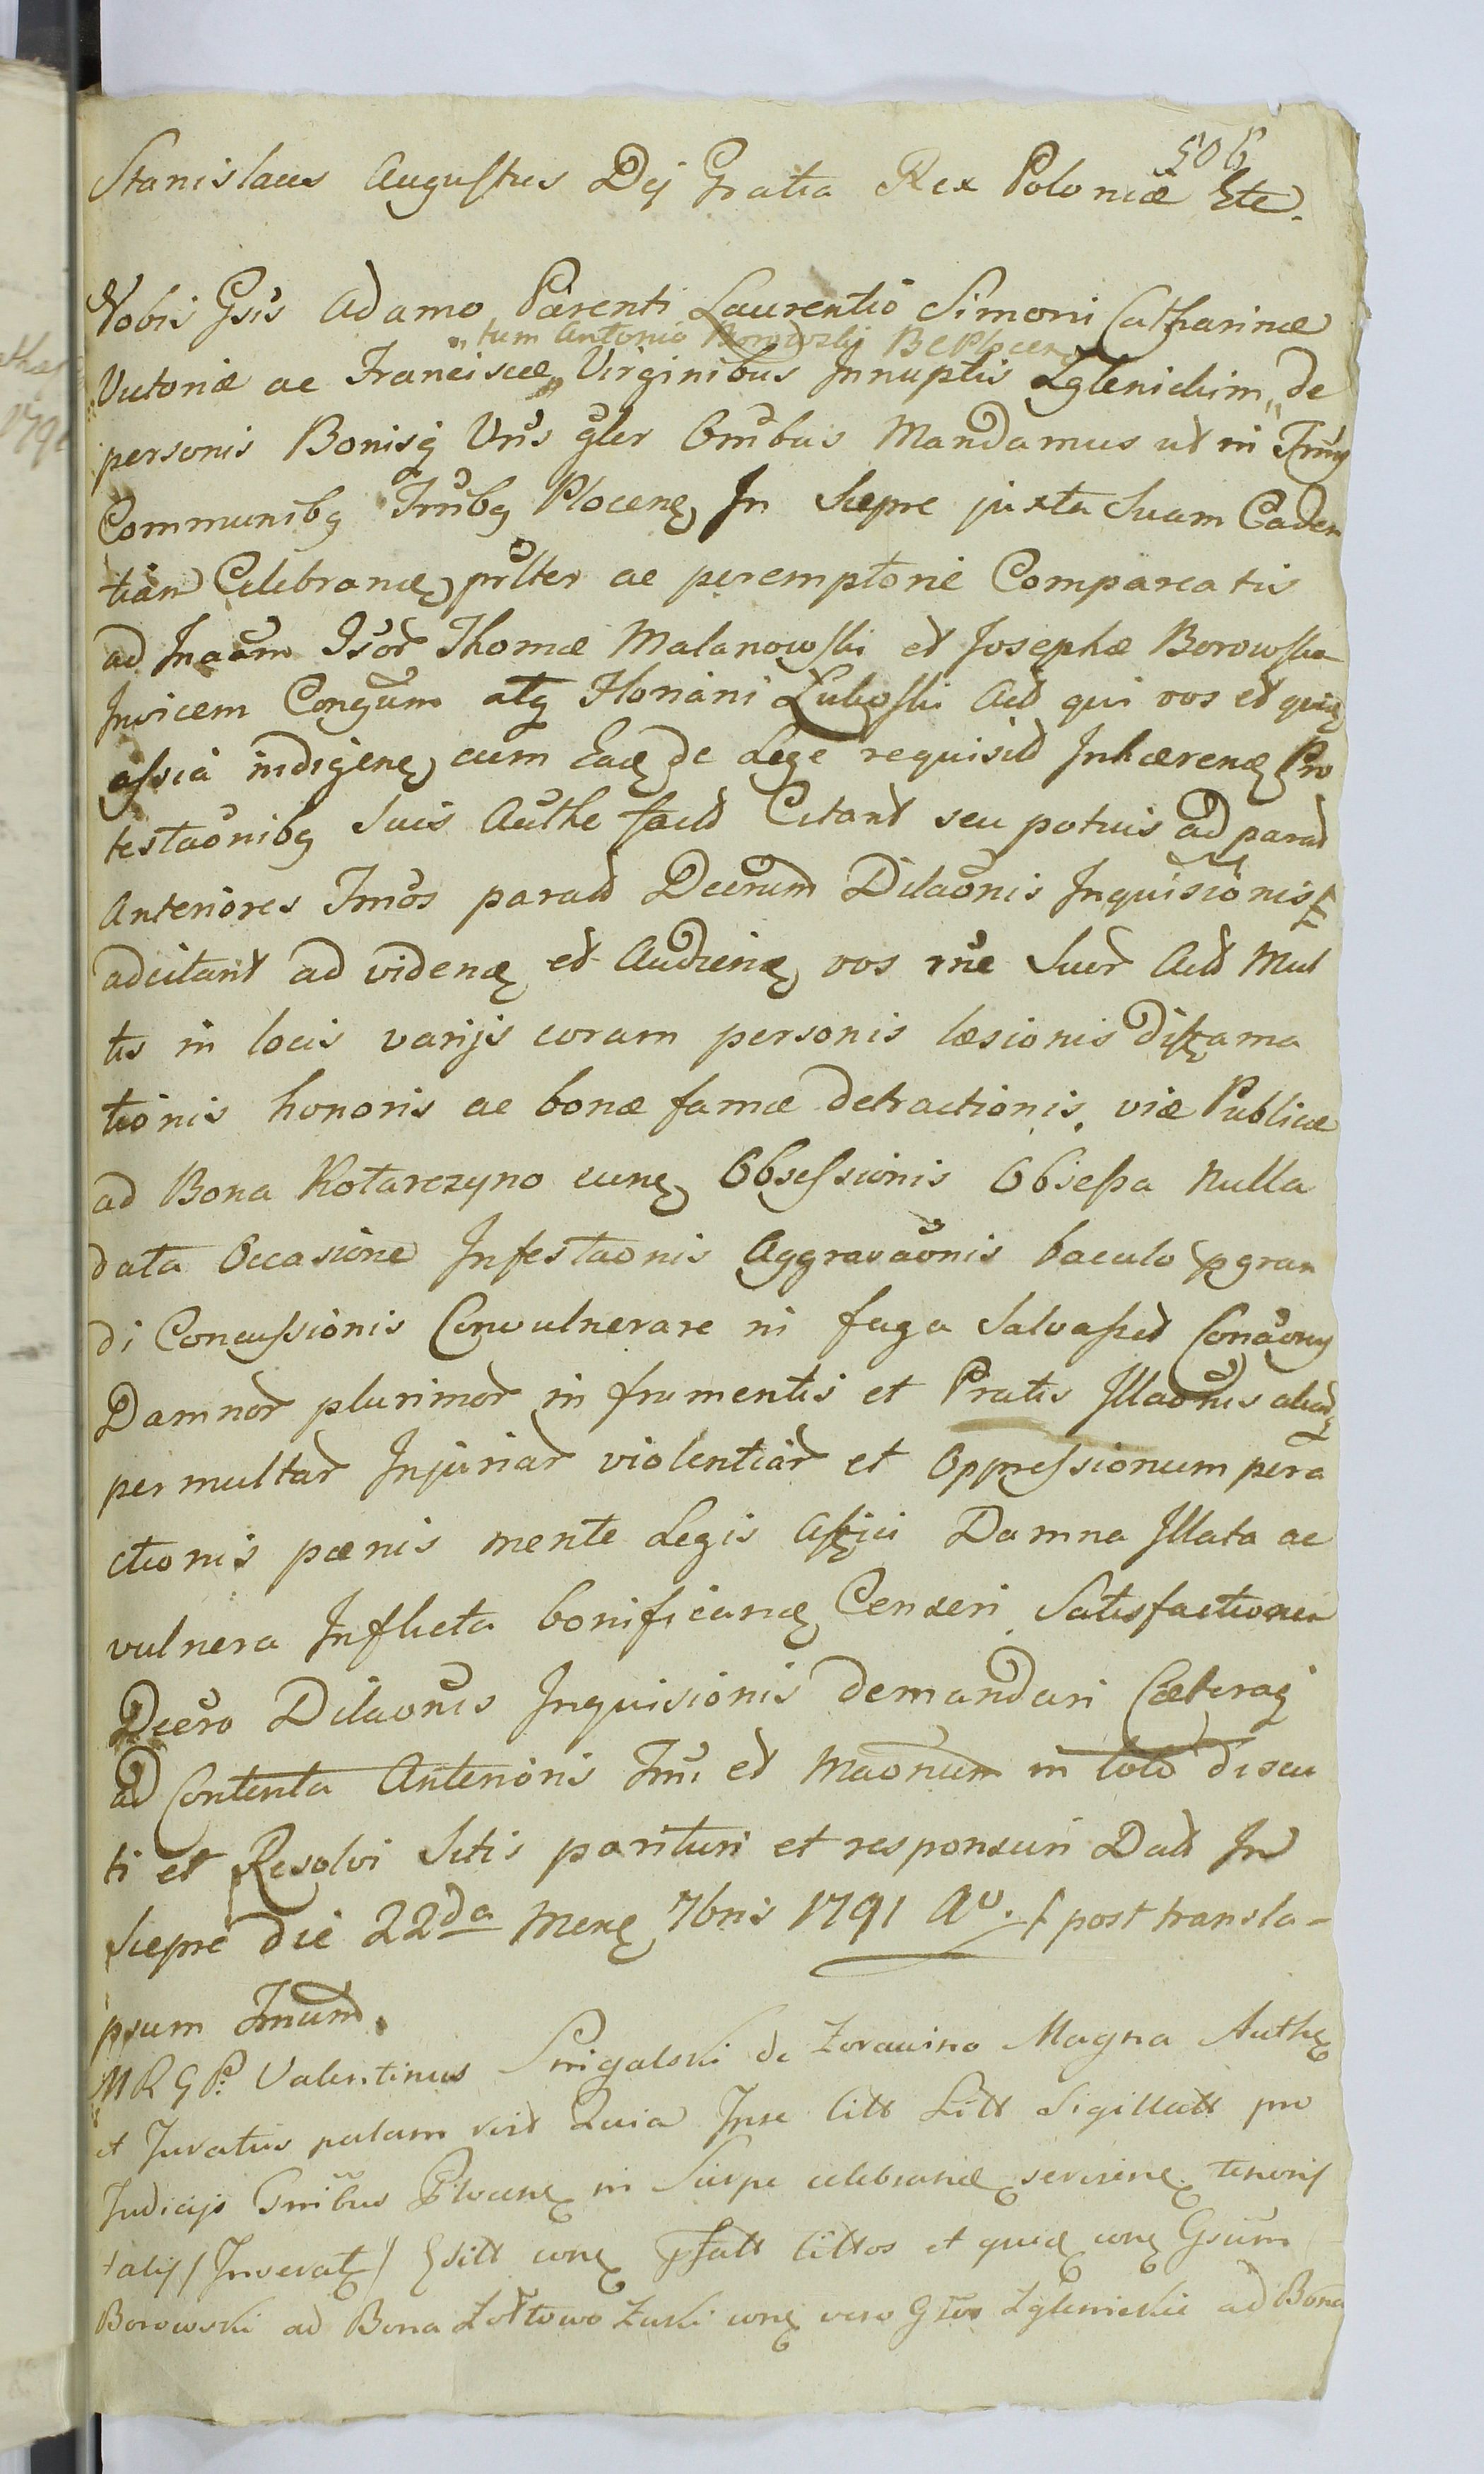 506
Stanislaus Augustus Dej Gratia Rex Poloniæ Etc.
Vobis Gsis Adamo Parenti Laurentio Simoni Catharinæ
„tum Antonio Borowski BCPlocen
Victoriæ ac Franciscæ „ Virginibus Innuptis Zglenickim „ de
personis Bonisq Vris gler Omibus Mandamus ut in Trmis
Communibq Trmibq Plocenę In Siepre juxta Suam Caden
tiam Celebrandę prlter ac peremptorie Compareatis
ad Inaõm Gsor Thomæ Malanowski et Josephæ Borowska
Invicem Congum atq Floriani Lukoski Act qui vos et quię
assia indigenę cum Eadę de Lege requisit Inhærendę Pro
testaõnibq Suis Authe fact Citant seu potius ad parat
Anteriores Trnos paratt Decrum Dilaõnis Inquisiõnis
adcitant ad videndę et Audiendę vos rne Suor Act Mul
tis in locis varijs coram personis læsionis diffama
tionis honoris ac bonæ famæ detractionis, viæ Publicæ
ad Bona Kotarczyno eunę Obsessionis Obsessa Nulla
data Occasione Infestaõnis Aggravaõnis baculo pgran
di Concussionis Convulnerare ni fuga Salvasset Conaõnis
Damnor plurimor in frumentis et Pratis Illaõnis aliarq
permultar Injuriar violentiar et Oppressionum pera
ctionis pænis mente Legis Affici Damna Illata ac
vulnera Inflicta bonificandę Censeri Satisfactionem
Decro Dilaõnis Inquisiõnis demandari Cæteraq
ad Contenta Anterioris Trni et Maõnum in toto discu
ti et Resolvi Sitis parituri et responsuri Datt In
Siepre die 22da Mensę 7bris 1791 Ao. / post transla-
psum Trnum.
MRGP. Valentinus Smigalski de Zorawino Magna Authę
et Juratus palam rect Quia Inse litt Litt Sigillatt pro
Judicijs Gnibus Plocenę in Sierpc celebrandę serviendę tenoris
talis / Inseratę / Esitt conę Psatt Cittos et quidę conę Gsum
Borowski ad Bona Zoltowo Zuski conę vero Gsos Zglenickie ad Bona